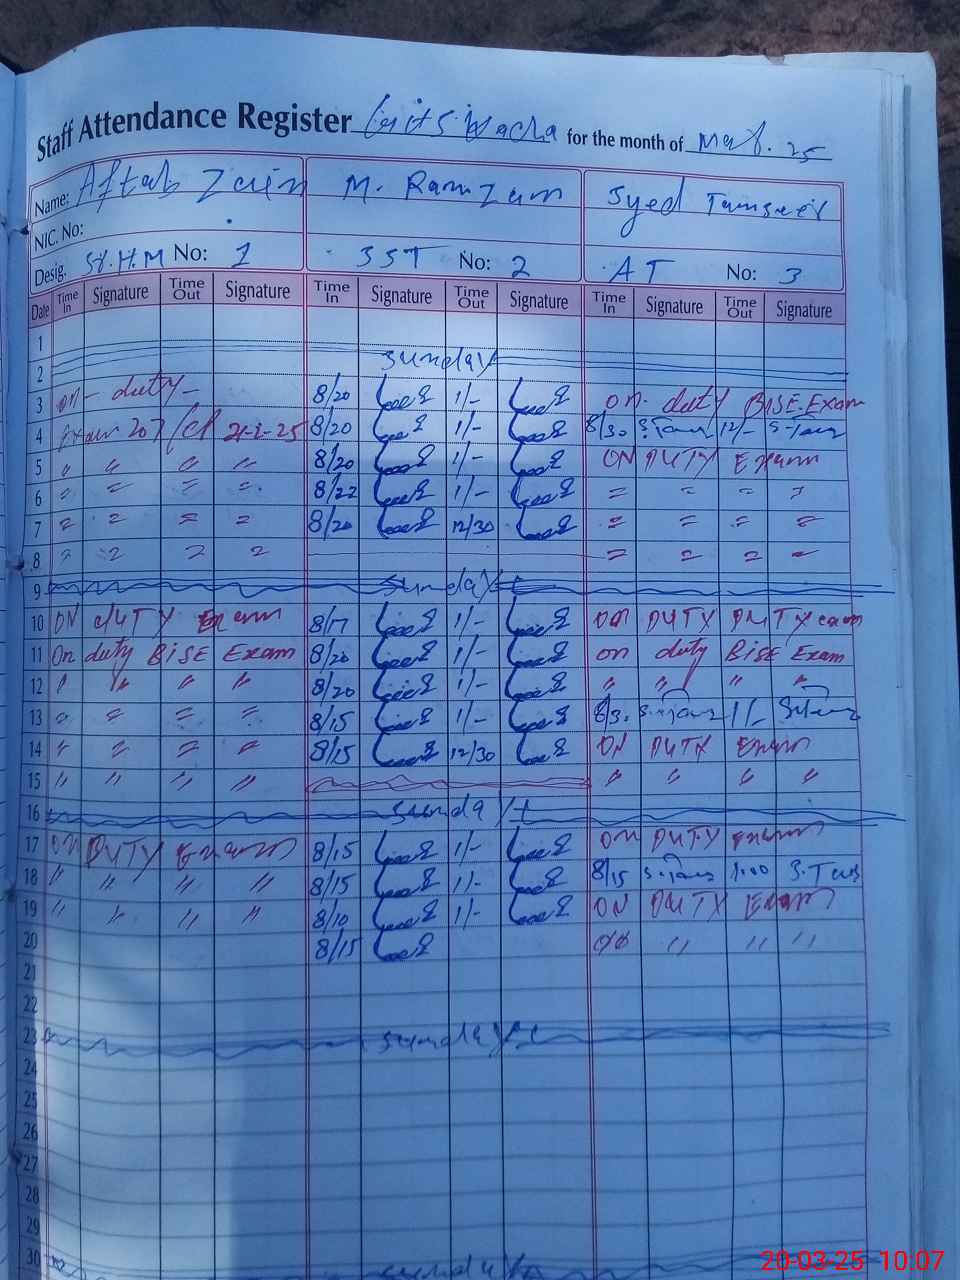 Staff Attendance Register for the month of 25
Name: Aftab Zain M. Ramzan Syed
NIC. No:
Desig. H.M No: 1 SST No: 2 AT No: 3
Date Time In Signature Time Out Signature Time In Signature Time Out Signature Time In Signature Time Out Signature
1
2 sunday
3 on - duty - 8/20 1/- on duty BISE. Exam
4 Exam 207 / 21-2-25 8/20 1/- 8/30 12/-
5 " " " " 8/20 1/- ON DUTY Exam
6 " " " " 8/22 1/- " " " "
7 " " " " 8/20 12/30 " " " "
8 " " " " " " " "
9 sunday
10 ON dUTY Exam 8/17 1/- ON DUTY DUTY exam
11 On duty BISE Exam 8/20 1/- on duty BISE Exam
12 " " " " 8/20 1/- " " " "
13 " " " " 8/15 1/- 8/3. 1/-
14 " " " " 8/15 12/30 ON DUTY Exam
15 " " " " " " " "
16 sunday
17 ON DUTY Exam 8/15 1/- ON DUTY Exam
18 " " " " 8/15 1/- 8/15 1:00
19 " " " " 8/10 1/- ON DUTY Exam
20 8/15 " " "
21
22
23 sunday
24
25
26
27
28
29
30 sunday
20-03-25 10:07